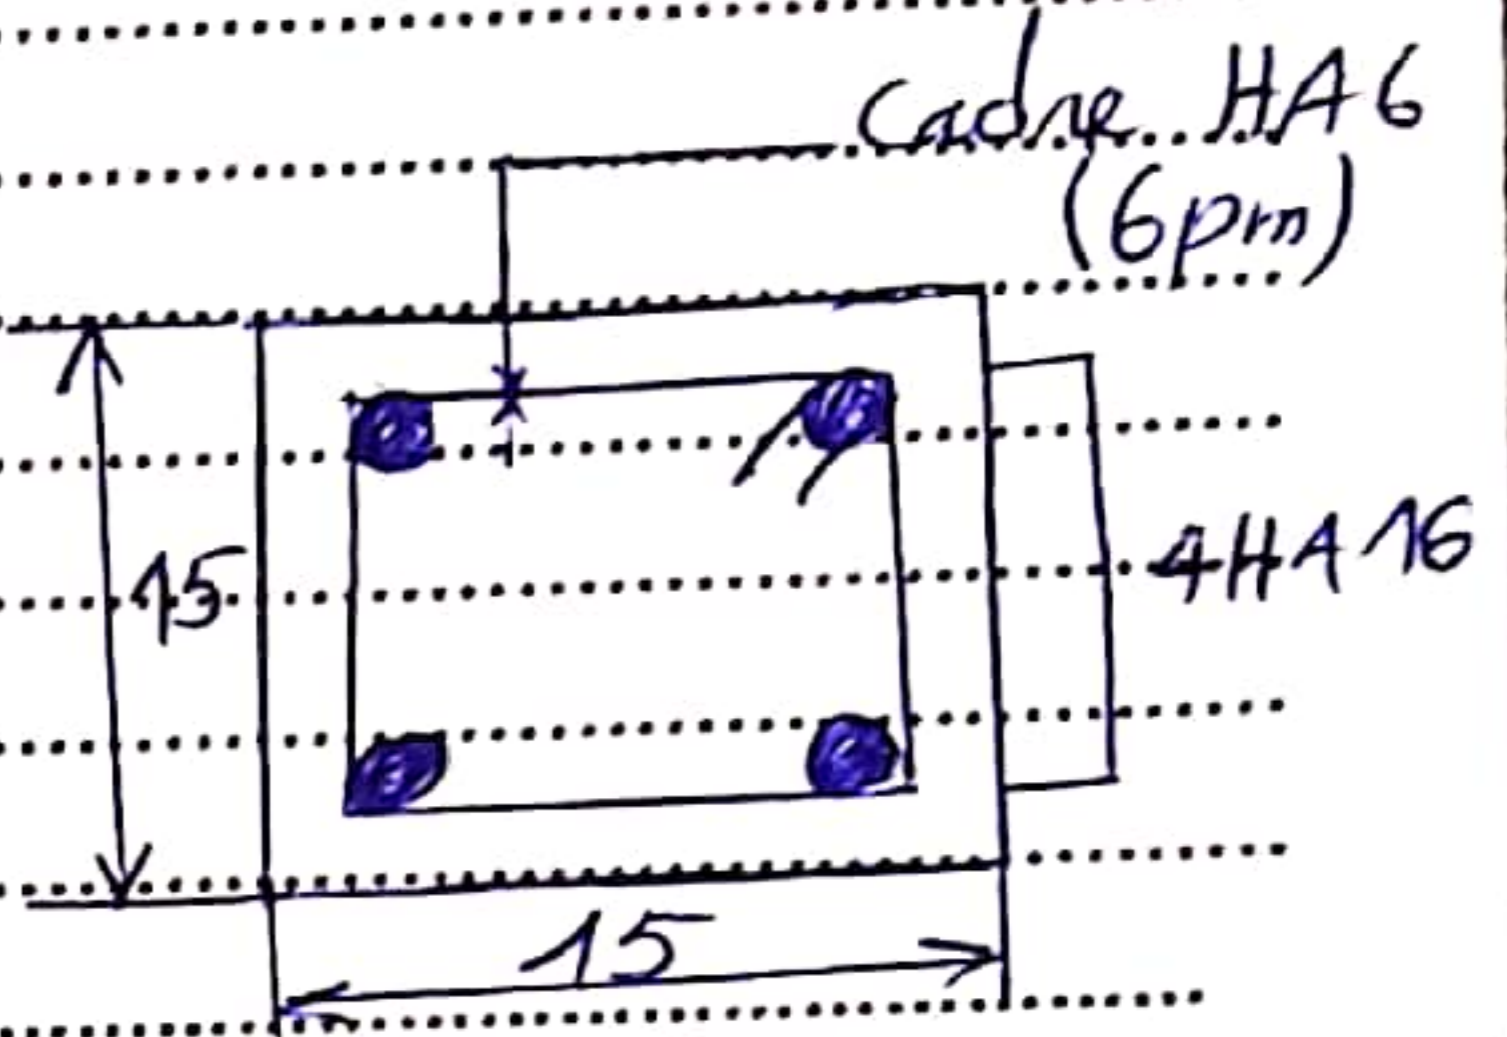 Cadre HA6
(6pm)
15
4HA16
15